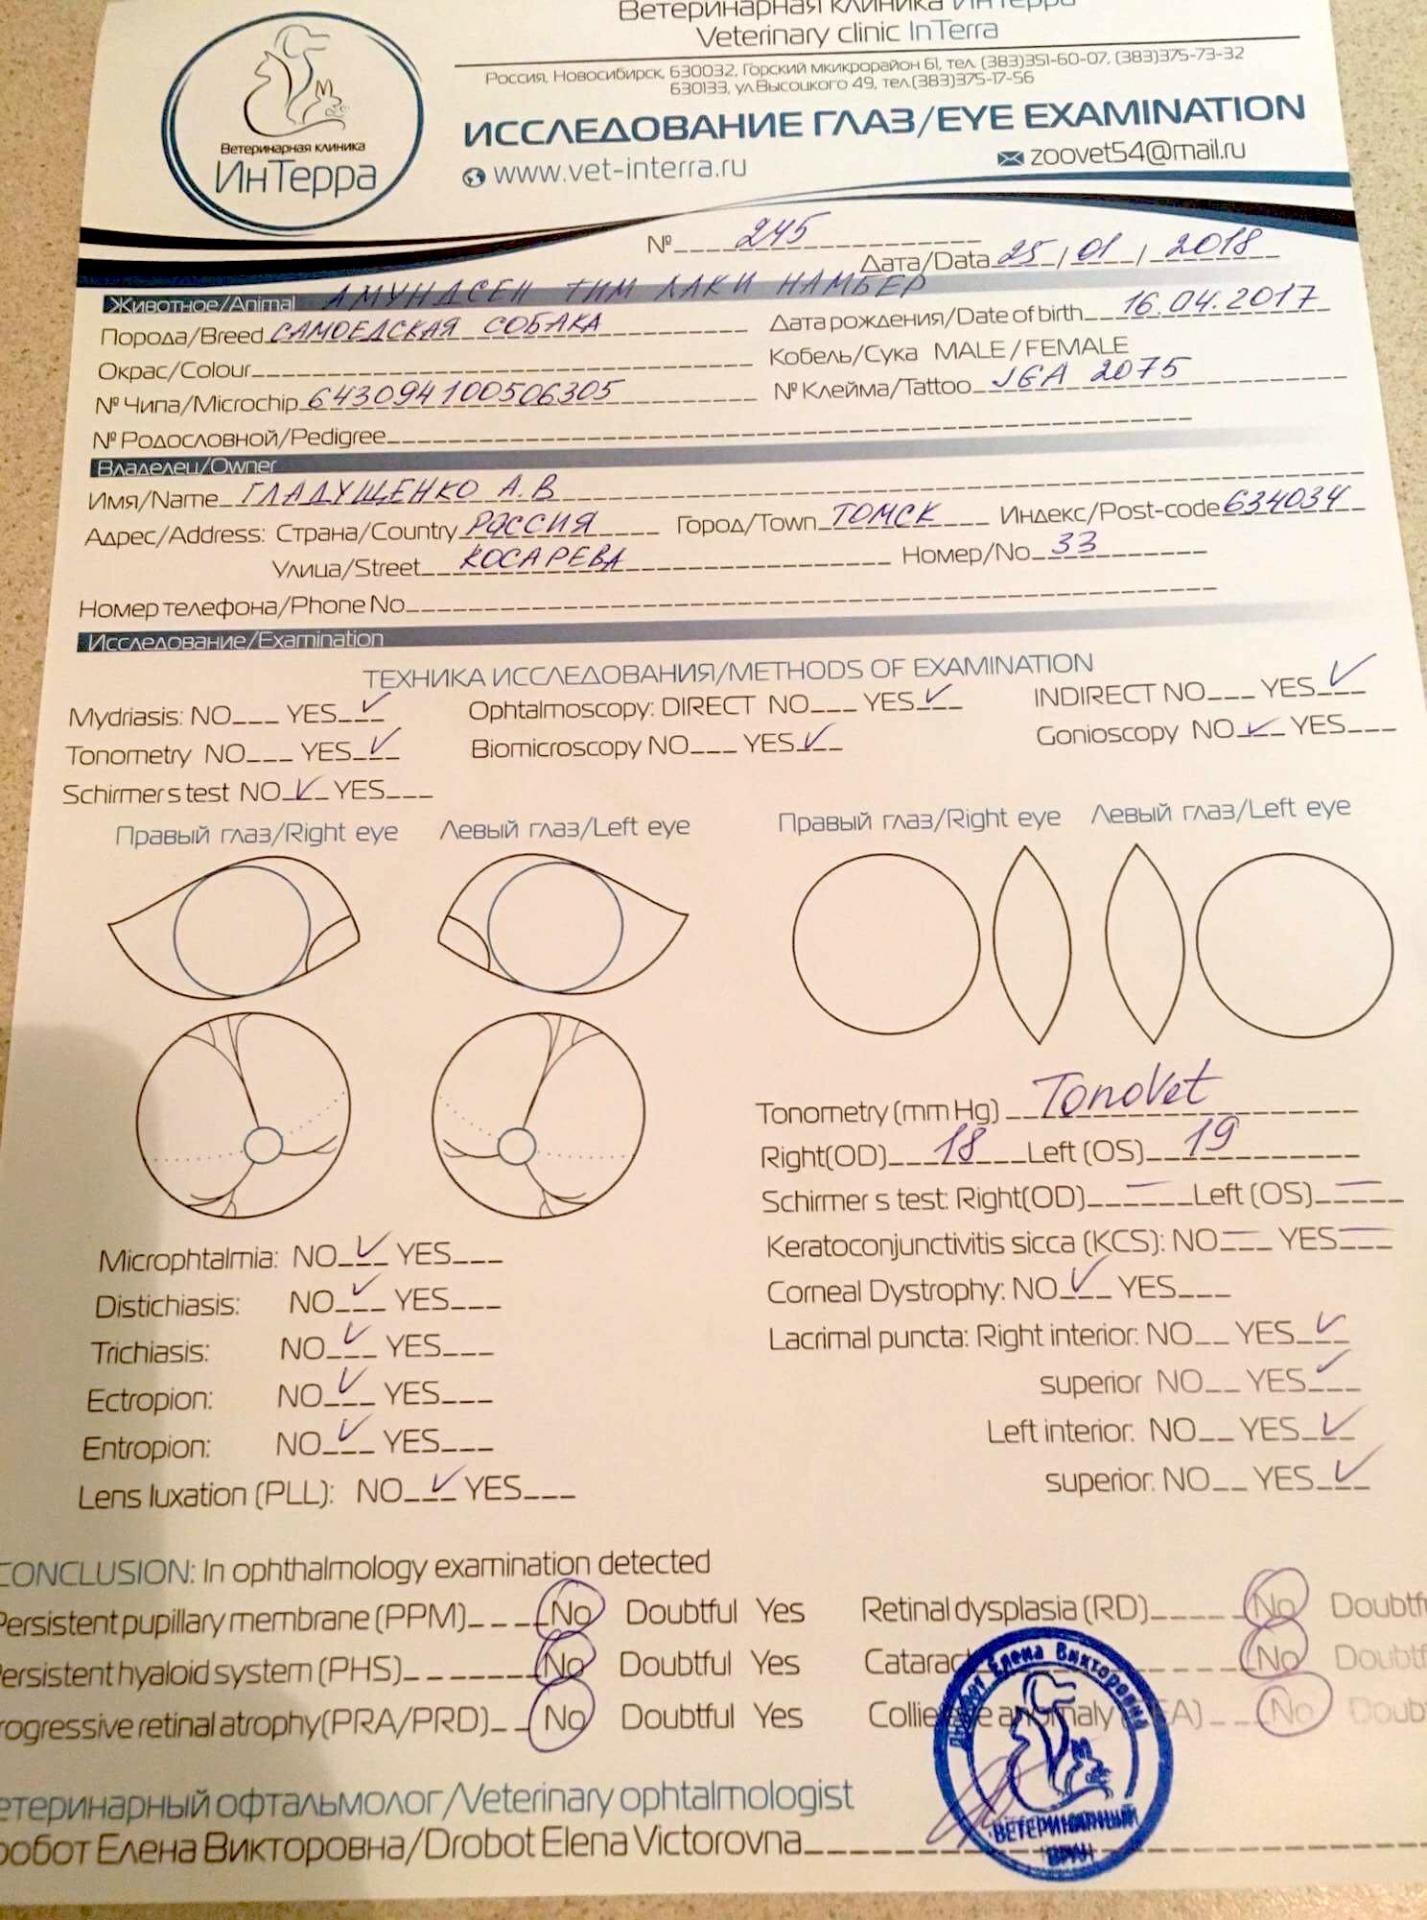 Ветеринарная клиника ИнТерра
Veterinary clinic InTerra
Россия, Новосибирск, 630032, Горский мкикрорайон 61, тел. (383)351-60-07, (383)375-73-32
630133, ул.Высоцкого 49, тел.(383)375-17-56
Ветеринарная клиника
ИнТерра
ИССЛЕДОВАНИЕ ГЛАЗ/EYE EXAMINATION
www.vet-interra.ru zoovet54@mail.ru
№ 245
Дата/Data 25/01/2018
Животное/Animal АМУНДСЕН ТИМ ЛАКИ НАМБЕР
Порода/Breed САМОЕДСКАЯ СОБАКА Дата рождения/Date of birth 16.04.2017
Окрас/Colour Кобель/Сука MALE/FEMALE
№ Чипа/Microchip 643094100506305 № Клейма/Tattoo JGA 2075
№ Родословной/Pedigree
Владелец/Owner
Имя/Name ГЛАДУЩЕНКО А.В
Адрес/Address: Страна/Country РОССИЯ Город/Town ТОМСК Индекс/Post-code 634034
Улица/Street КОСАРЕВА Номер/No 33
Номер телефона/Phone No
Исследование/Examination
ТЕХНИКА ИССЛЕДОВАНИЯ/METHODS OF EXAMINATION
Mydriasis: NO___ YES_✓ Ophtalmoscopy: DIRECT NO___ YES_✓ INDIRECT NO___ YES_✓
Tonometry NO___ YES_✓ Biomicroscopy NO___ YES_✓ Gonioscopy NO_✓ YES___
Schirmer s test NO_✓ YES___
Правый глаз/Right eye Левый глаз/Left eye Правый глаз/Right eye Левый глаз/Left eye
Tonometry (mm Hg) TonoVet
Right(OD) 18 Left (OS) 19
Schirmer s test: Right(OD) — Left (OS) —
Keratoconjunctivitis sicca (KCS): NO — YES —
Corneal Dystrophy: NO_✓ YES___
Lacrimal puncta: Right interior: NO__ YES_✓
superior NO__ YES_✓
Left interior: NO__ YES_✓
superior: NO__ YES_✓
Microphtalmia: NO_✓ YES___
Distichiasis: NO_✓ YES___
Trichiasis: NO_✓ YES___
Ectropion: NO_✓ YES___
Entropion: NO_✓ YES___
Lens luxation (PLL): NO_✓ YES___
CONCLUSION: In ophthalmology examination detected
Persistent pupillary membrane (PPM) No Doubtful Yes Retinal dysplasia (RD) No Doubtf
ersistent hyaloid system (PHS) No Doubtful Yes Catarac No Doubtf
rogressive retinal atrophy(PRA/PRD) No Doubtful Yes Collie e anomaly EA) No Doub
етеринарный офтальмолог/Veterinary ophtalmologist
робот Елена Викторовна/Drobot Elena Victorovna
Дробот Елена Викторовна
ВЕТЕРИНАРНЫЙ
ВРАЧ